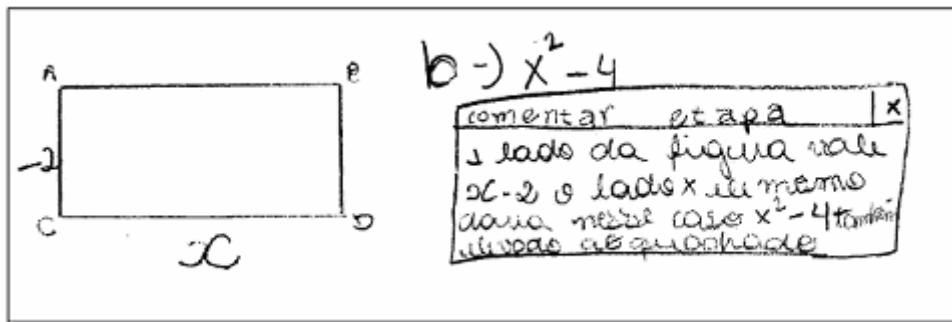 A B
-2
C D
x
b-) x² - 4
comentar etapa x
1 lado da figura vale
x-2 o lado x ele mesmo
daria nesse caso x² - 4 também
elevado ao quadrado